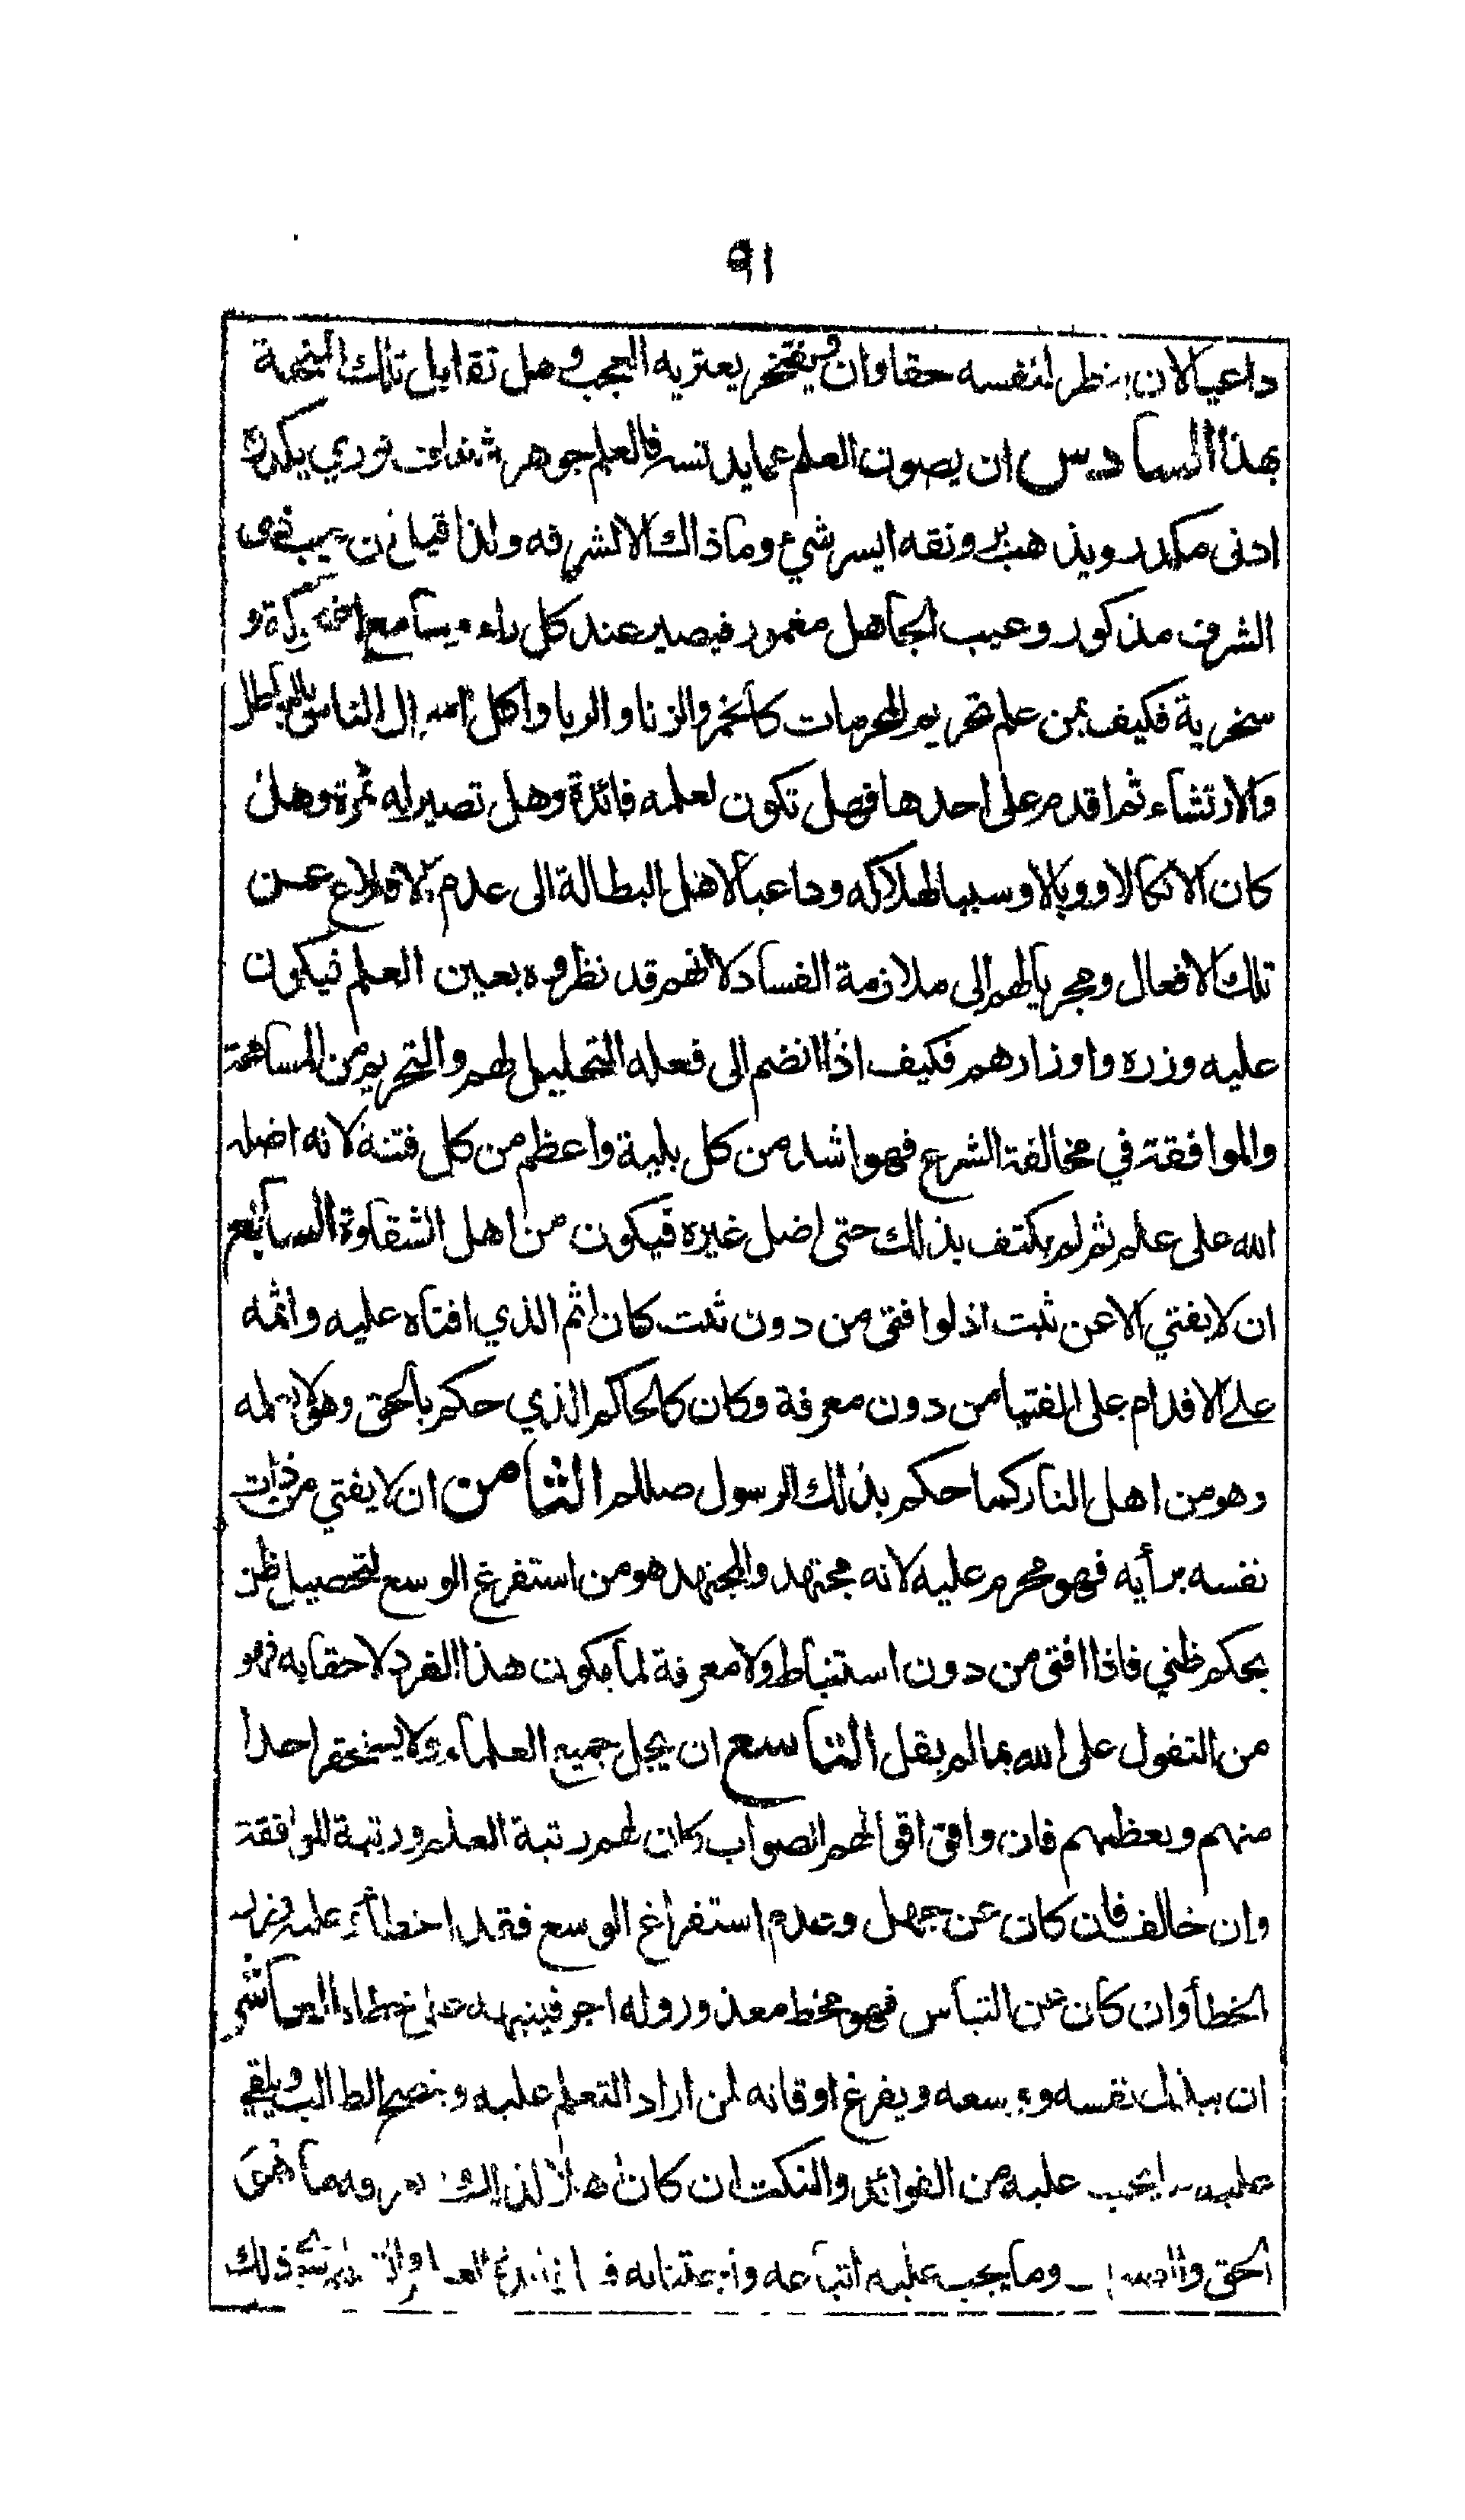 ٩١
داعيا لان ينظر لنفسه حقا وان يفتخر ويعتريه العجب وهل تقابل تلك النعمة
بهذا السادس ان يصون العلم عما يدنسه فالعلم جوهر شفاف نوري يكدره
ادنى مكدر ويذهب برونقه ايسر شيء وما ذاك الا لشرفه ولذا قيل ان عيب ذوى
الشرف مذكور وعيب الجاهل مغمور فيصير عند كل راء وسامع اضحوكة و
سخرية فكيف بمن علم تحريم المحرمات كالخمر والزنا والربا واكل اموال الناس بالباطل
والارتشاء ثم اقدم على احدها فهل تكون لعلمه فائدة وهل تصير له ثمرة وهل
كان الا نكالا ووبالا وسببا لهلاكه وداعيا لاهل البطالة الى عدم الاقلاع عن
تلك الافعال ومجريا لهم الى ملازمة الفساد لانهم قد نظروه بعين العلم فيكون
عليه وزره واوزارهم فكيف اذا انضم الى فعله التحليل لهم والتحريم من المسامحة
والموافقة في مخالفة الشرع فهو اشد من كل بلية واعظم من كل فتنة لانه اضله
الله على علم ثم لم يكتف بذلك حتى اضل غيره فيكون من اهل الشقاوة السابع
ان لا يفتي الا عن ثبت اذ لو افتى من دون ثبت كان اثم الذي افتاه عليه واثمه
على الاقدام على الفتيا من دون معرفة وكان كالحاكم الذي حكم بالحق وهو لا يعلمه
وهو من اهل النار كما حكم بذلك الرسول صللم الثامن ان لا يفتي من ذات
نفسه برأيه فهو محرم عليه لانه مجتهد والمجتهد هو من استفرغ الوسع لتحصيل ظن
بحكم ظني فاذا افتى من دون استنباط ولا معرفة لما يكون هذا الفرد لاحقا به فهو
من التقول على الله بما لم يقل التاسع ان يجل جميع العلماء ولا يستحقر احدا
منهم ويعظمهم فان وافق اقوالهم الصواب كان لهم رتبة العلم ورتبة الموافقة
وان خالف فان كان عن جهل وعدم استفراغ الوسع فقد اخطأ وعليه وزر
الخطأ وان كان عن التباس فهو مخط معذور وله اجر فينبهه على خطاه العاشر
ان يبذل نفسه ووسعه ويفرغ اوقاته لمن اراد التعلم عليه وينصح الطالب ويلقي
عليه ما يجب عليه من الفوائد والنكت ان كان اهلا لذلك ويعرفه ما هو
الحق وما يجب عليه اتباعه واجتنابه ذلك